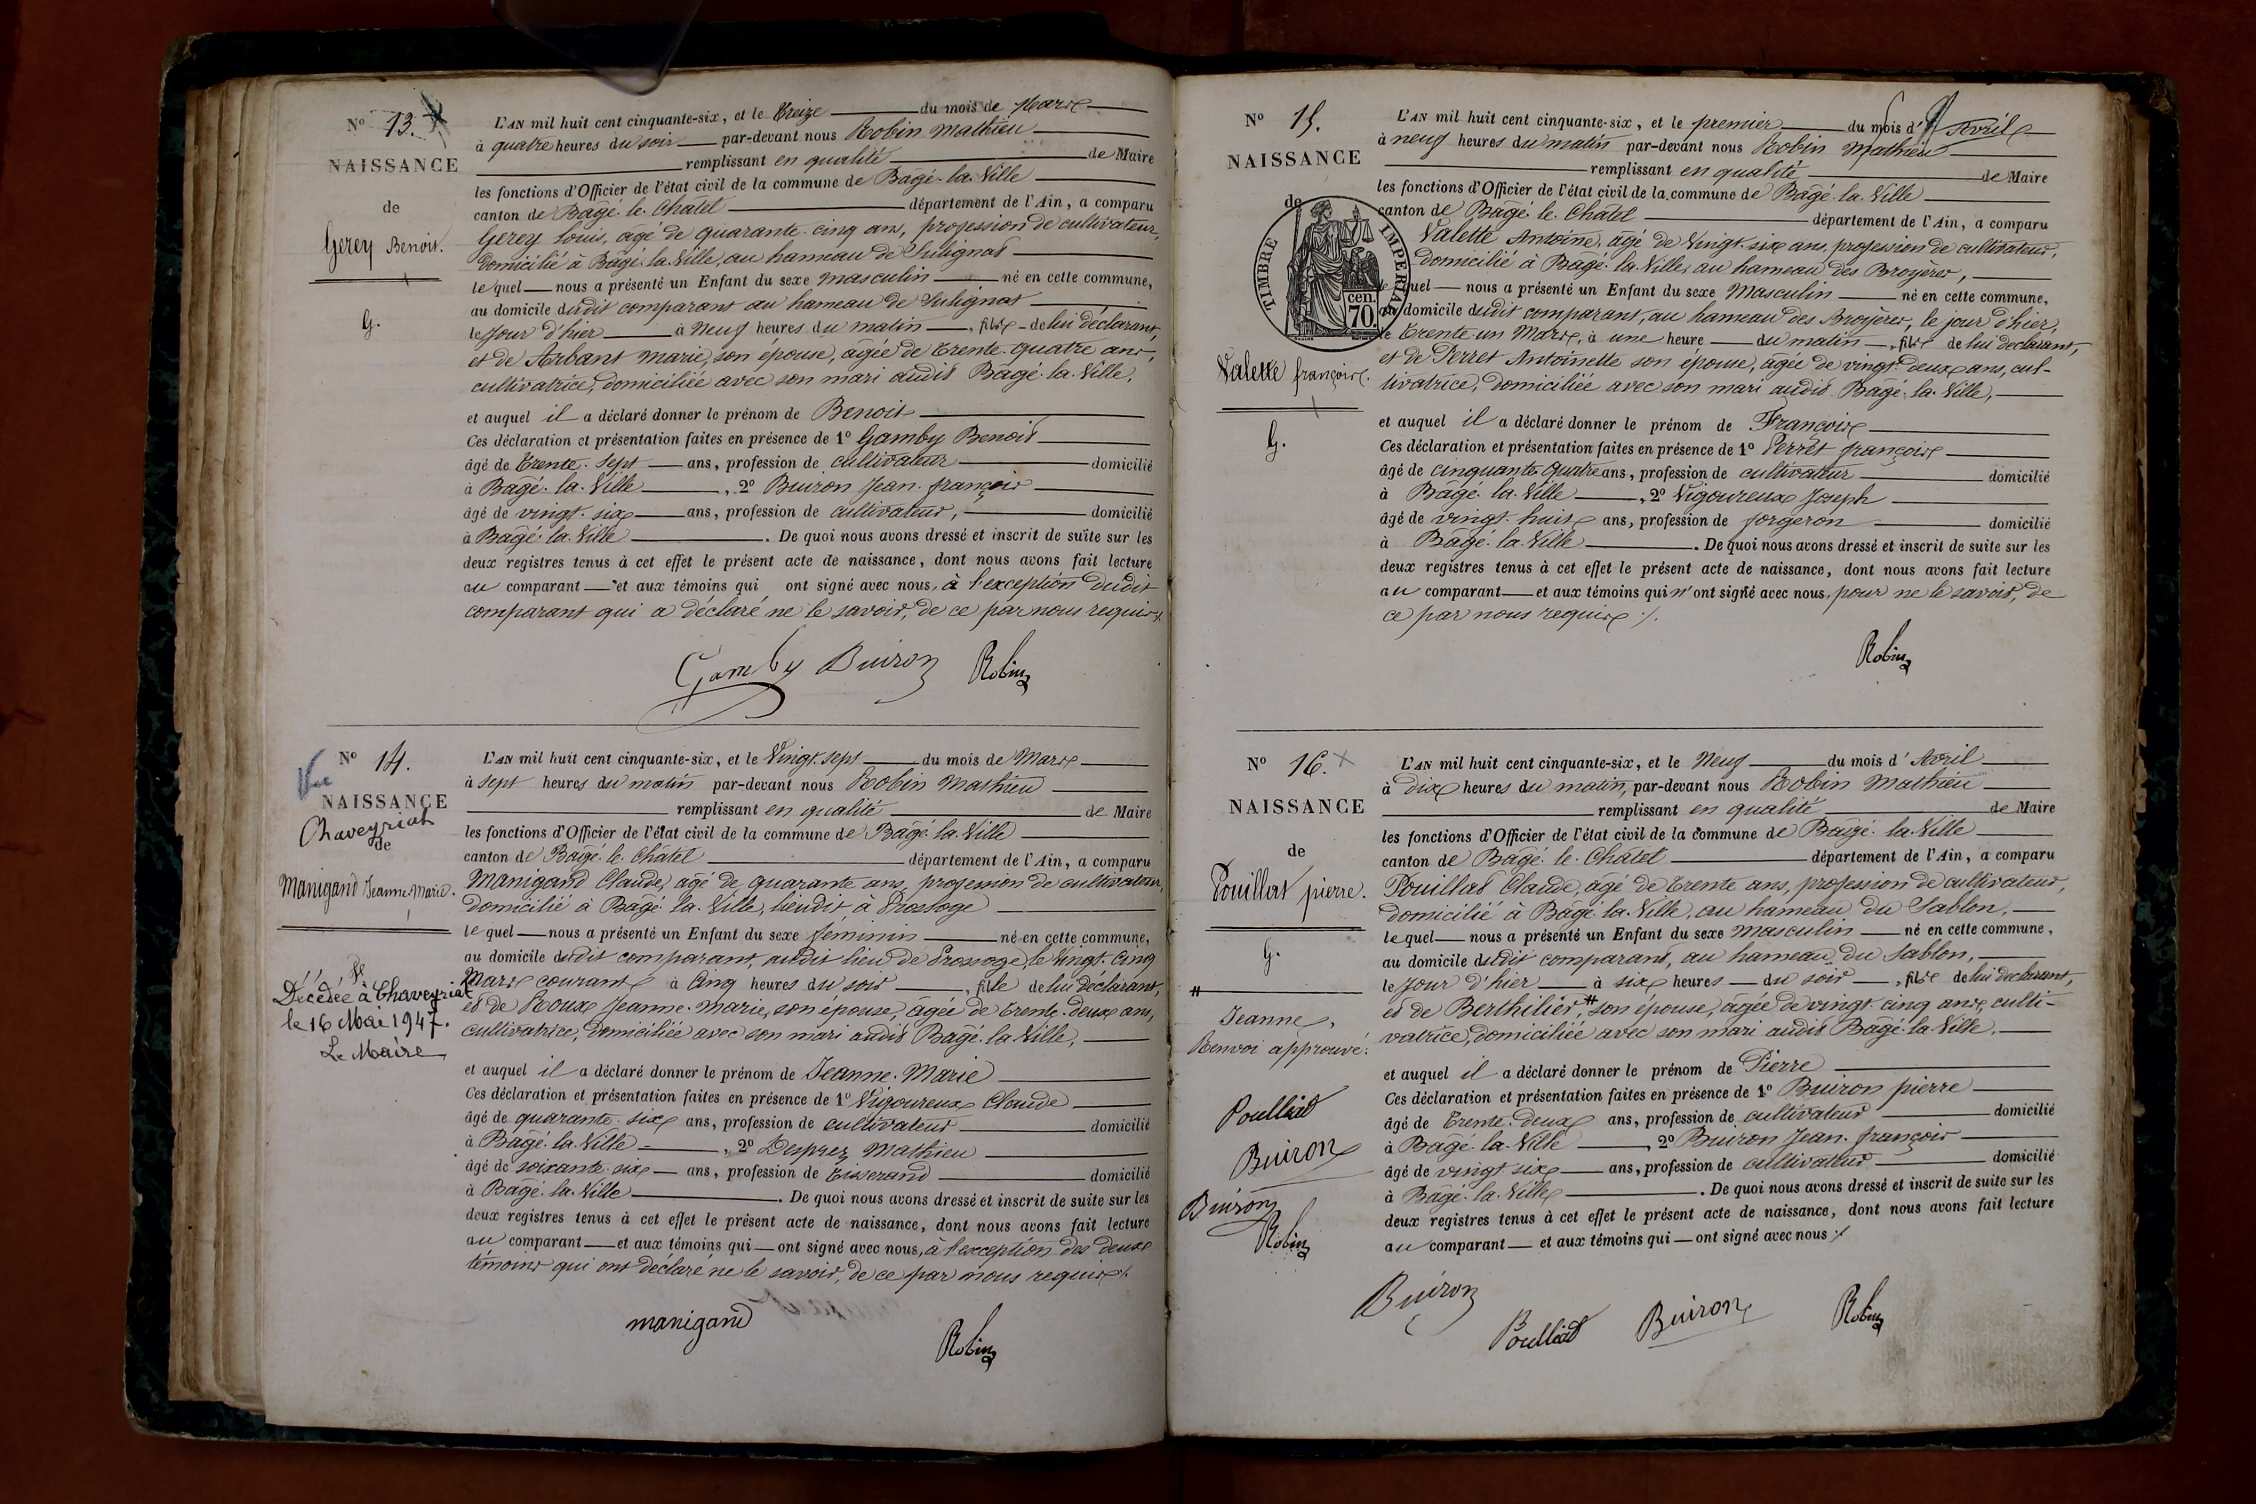 Nº 13.
NAISSANCE
de
Gerey Benoit.
G.
L'AN mil huit cent cinquante-six, et le treize du mois de Mars
à quatre heures du soir par-devant nous Robin Mathieu
remplissant en qualité de Maire
les fonctions d'Officier de l'état civil de la commune de Bagé-la-Ville
canton de Bagé-le-Châtel département de l'Ain, a comparu
Gerey Louis, âgé de quarante-cinq ans, profession de cultivateur,
domicilié à Bagé-la-Ville, au hameau de
lequel nous a présenté un Enfant du sexe masculin né en cette commune,
au domicile dudit comparant au hameau de
le Jour d'hier à Neuf heures du matin, fils de lui déclarant,
et de Arbant Marie, son épouse, âgée de trente-quatre ans,
cultivatrice, domiciliée avec son mari audit Bagé-la-Ville,
et auquel il a déclaré donner le prénom de Benoit
Ces déclaration et présentation faites en présence de 1º Gamby Benoit
âgé de trente-sept ans, profession de cultivateur domicilié
à Bagé-la-Ville, 2º Buiron Jean-françois
âgé de vingt-six ans, profession de cultivateur, domicilié
à Bagé-la-Ville. De quoi nous avons dressé et inscrit de suite sur les
deux registres tenus à cet effet le présent acte de naissance, dont nous avons fait lecture
au comparant et aux témoins qui ont signé avec nous, à l'exception dudit
comparant qui a déclaré ne le savoir, de ce par nous requis ./.
Gamby Buiron Robin
Nº 14.
Vu
NAISSANCE
Chaveyriat
de
Manigand Jeanne-Marie.
Décédée à Chaveyriat
le 16 Mai 1947.
Le Maire
L'AN mil huit cent cinquante-six, et le Vingt-sept du mois de Mars
à sept heures du matin par-devant nous Robin Mathieu
remplissant en qualité de Maire
les fonctions d'Officier de l'état civil de la commune de Bagé-la-Ville
canton de Bagé-le-Châtel département de l'Ain, a comparu
Manigand Claude, âgé de quarante ans, profession de cultivateur,
domicilié à Bagé-la-Ville, lieudit à
lequel nous a présenté un Enfant du sexe féminin né en cette commune,
au domicile dudit comparant, audit lieu de le vingt-cinq
Mars courant à Cinq heures du soir, fille de lui déclarant,
et de Roux Jeanne-Marie, son épouse, âgée de trente-deux ans,
cultivatrice, domiciliée avec son mari audit Bagé-la-Ville,
et auquel il a déclaré donner le prénom de Jeanne-Marie
Ces déclaration et présentation faites en présence de 1º Vigoureux Claude
âgé de quarante-six ans, profession de cultivateur domicilié
à Bagé-la-Ville, 2º Desprez Mathieu
âgé de soixante-six ans, profession de tisserand domicilié
à Bagé-la-Ville. De quoi nous avons dressé et inscrit de suite sur les
deux registres tenus à cet effet le présent acte de naissance, dont nous avons fait lecture
au comparant et aux témoins qui ont signé avec nous, à l'exception des deux
témoins qui ont déclaré ne le savoir, de ce par nous requis ./.
manigand
Robin
Nº 15.
NAISSANCE
de
TIMBRE IMPERIAL
cen.
70.
Valette françois.
G.
L'AN mil huit cent cinquante-six, et le premier du mois d'Avril
à neuf heures du matin par-devant nous Robin Mathieu
remplissant en qualité de Maire
les fonctions d'Officier de l'état civil de la commune de Bagé-la-Ville
canton de Bagé-le-Châtel département de l'Ain, a comparu
Valette Antoine, âgé de Vingt-six ans, profession de cultivateur,
domicilié à Bagé-la-Ville, au hameau des Broyères,
lequel nous a présenté un Enfant du sexe Masculin né en cette commune,
au domicile dudit comparant, au hameau des Broyères, le jour d'hier,
le trente-un Mars, à une heure du matin, fils de lui déclarant,
et de Perret Antoinette son épouse, âgée de vingt-deux ans, cul-
tivatrice, domiciliée avec son mari audit Bagé-la-Ville,
et auquel il a déclaré donner le prénom de François
Ces déclaration et présentation faites en présence de 1º Perret françois
âgé de cinquante-quatre ans, profession de cultivateur domicilié
à Bagé-la-Ville, 2º Vigoureux Joseph
âgé de vingt-huit ans, profession de forgeron domicilié
à Bagé-la-Ville. De quoi nous avons dressé et inscrit de suite sur les
deux registres tenus à cet effet le présent acte de naissance, dont nous avons fait lecture
au comparant et aux témoins qui n'ont signé avec nous, pour ne le savoir, de
ce par nous requis ./.
Robin
Nº 16.
NAISSANCE
de
Pouillat pierre.
G.
#
Jeanne,
Renvoi approuvé.
Poulliat
Buiron
Buiron
Robin
L'AN mil huit cent cinquante-six, et le Neuf du mois d'Avril
à dix heures du matin, par-devant nous Robin Mathieu
remplissant en qualité de Maire
les fonctions d'Officier de l'état civil de la commune de Bagé-la-Ville
canton de Bagé-le-Châtel département de l'Ain, a comparu
Pouillat Claude, âgé de trente ans, profession de cultivateur,
domicilié à Bagé-la-Ville, au hameau du Sablon,
lequel nous a présenté un Enfant du sexe Masculin né en cette commune,
au domicile dudit comparant, au hameau du Sablon,
le Jour d'hier à six heures du soir, fils de lui déclarant,
et de Berthilier,# son épouse, âgée de vingt-cinq ans, culti-
vatrice, domiciliée avec son mari audit Bagé-la-Ville.
et auquel il a déclaré donner le prénom de Pierre
Ces déclaration et présentation faites en présence de 1º Buiron pierre
âgé de trente-deux ans, profession de cultivateur domicilié
à Bagé-la-Ville, 2º Buiron Jean-françois
âgé de vingt-six ans, profession de cultivateur domicilié
à Bagé-la-Ville. De quoi nous avons dressé et inscrit de suite sur les
deux registres tenus à cet effet le présent acte de naissance, dont nous avons fait lecture
au comparant et aux témoins qui ont signé avec nous ./.
Buiron
Poulliat Buiron Robin